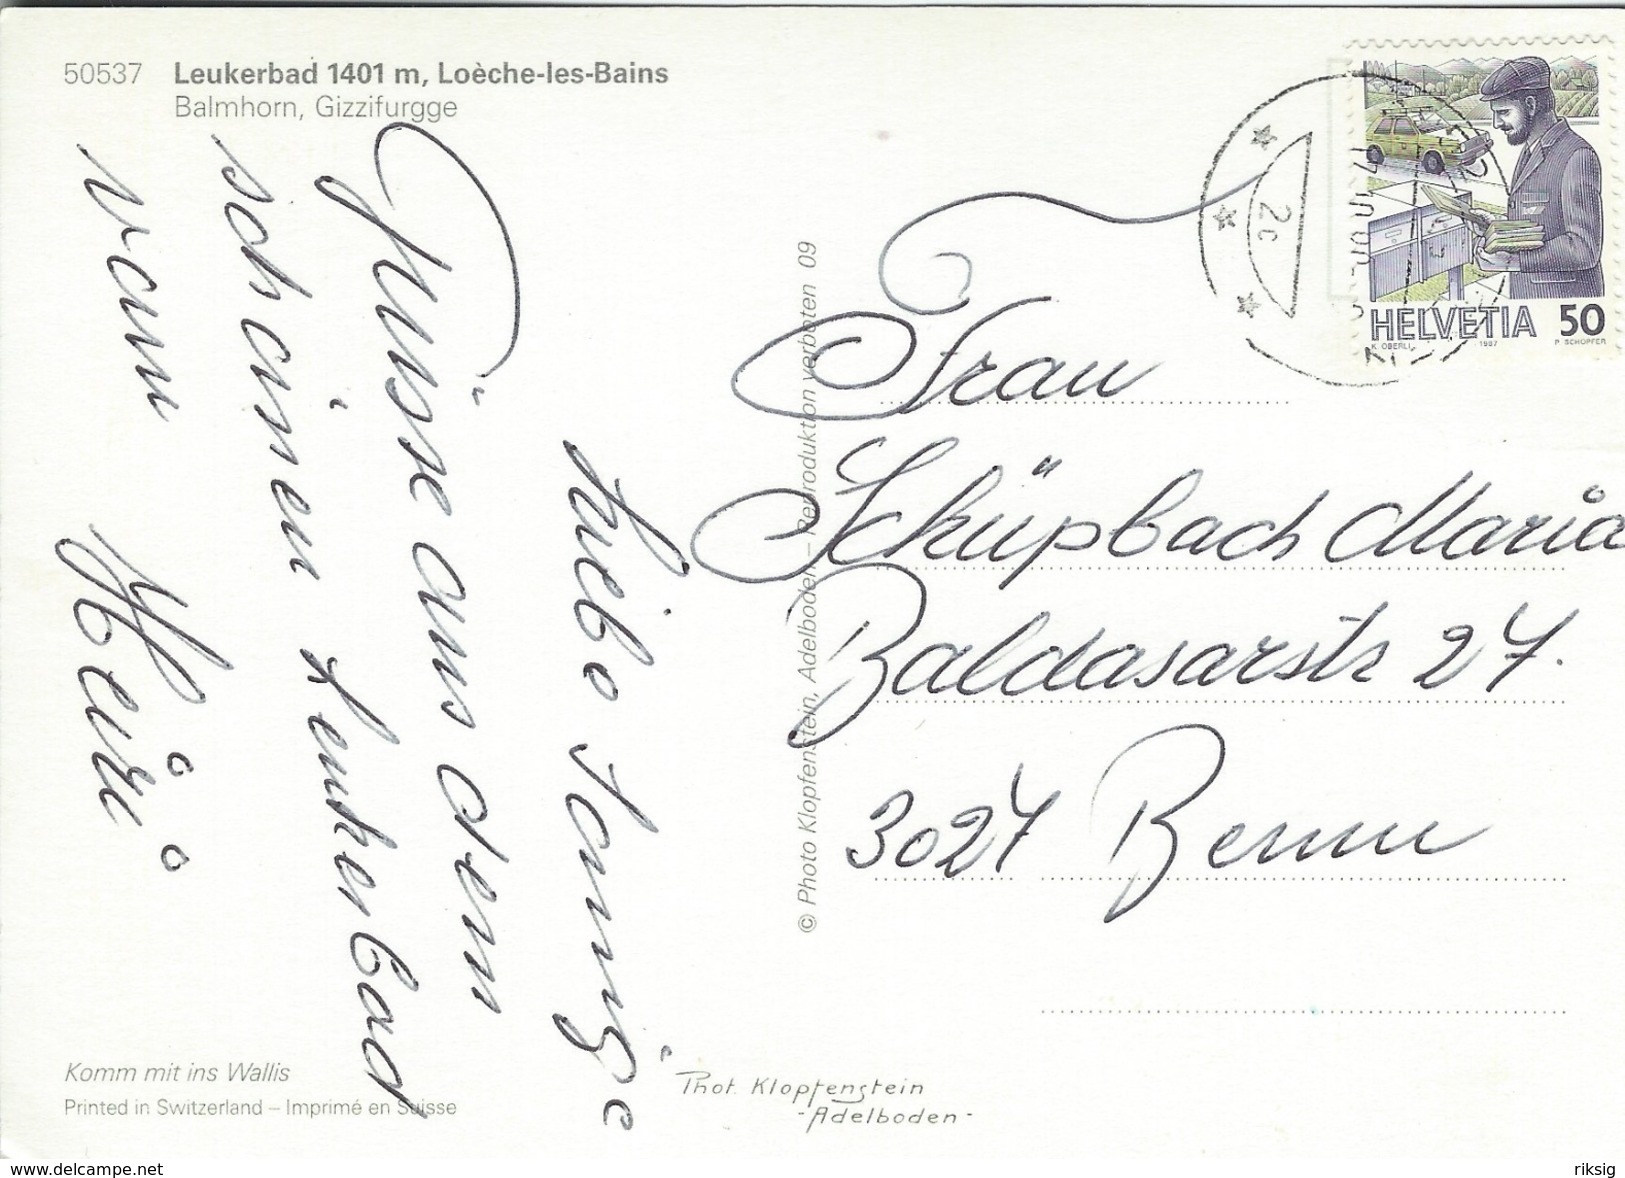 50537 Leukerbad 1401 m, Loèche-les-Bains
Balmhorn, Gizzifurgge
Liebe sonnige
Grüsse aus dem
schönen Leukerbad
vom
Heiri
Komm mit ins Wallis
Printed in Switzerland – Imprimé en Suisse
© Photo Klopfenstein, Adelboden – Reproduktion verboten 09
Phot. Klopfenstein
- Adelboden -
HELVETIA 50
K. OBERLI 1987 P. SCHOPFER
Frau
Schüpbach Maria
Baldasarstr 27.
3027 Bern
www.delcampe.net
riksig